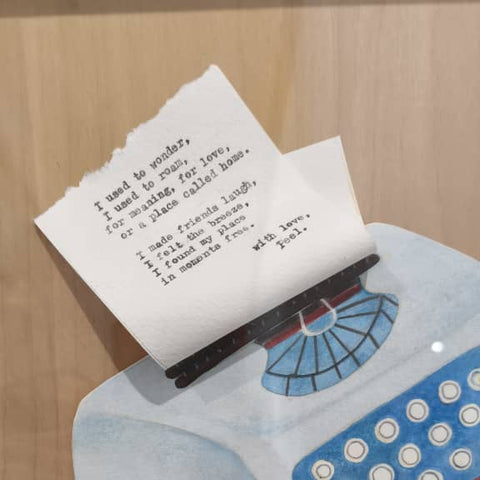 I used to wonder,
I used to roam,
for meaning, for love,
or a place called home.
I made friends laugh,
I felt the breeze,
I found my place
in moments free.
with love,
Feel.